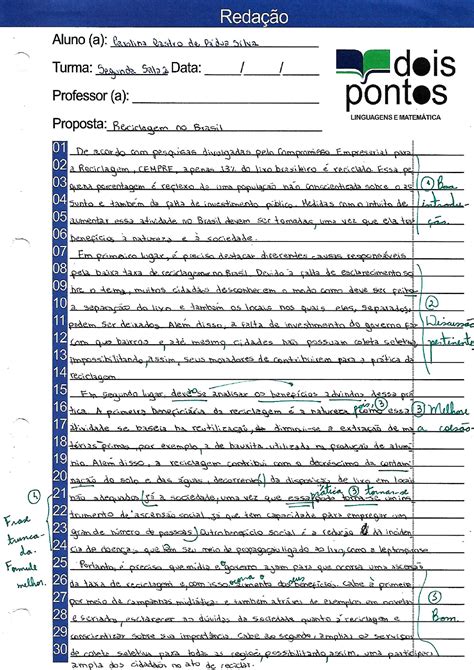 Redação
Aluno (a): Carolina Castro de Pádua Silva
Turma: Segunda Sala 2 Data: ___/___/___
Professor (a):
Proposta: Reciclagem no Brasil
dois
pontos
LINGUAGENS E MATEMÁTICA
01 De acordo com pesquisas divulgadas pelo Compromisso Empresarial para
02 a Reciclagem, CEMPRE, apenas 13% do lixo brasileiro é reciclado. Essa pe
03 quena porcentagem é reflexo de uma população não conscientizada sobre o as
04 sunto e também da falta de investimento público. Medidas com o intuito de
05 aumentar essa atividade no Brasil devem ser tomadas, uma vez que ela traz
06 benefícios à natureza e à sociedade.
① Boa
introdu-
ção.
07 Em primeiro lugar, é preciso destacar diferentes causas responsáveis
08 pela baixa taxa de reciclagem no Brasil. Devido à falta de esclarecimento so
09 bre o tema, muitos cidadãos desconhecem o modo como deve ser feita
10 a separação do lixo e também os locais nos quais eles, separados,
11 podem ser deixados. Além disso, a falta de investimento do governo faz
12 com que bairros e, até mesmo, cidades não possuam coleta seletiva
13 impossibilitando, assim, seus moradores de contribuirem para a prática da
14 reciclagem.
②
Discussão
pertinente
15 Em segundo lugar, deve-se analisar os benefícios advindos dessa prá
16 tica. A primeira beneficiária da reciclagem é a natureza pois, ③ essa
17 atividade se baseia na reutilização, diminui-se a extração de ma
18 térias primas, por exemplo, a de bauxita utilizada na produção de alumí
19 nio. Além disso, a reciclagem contribui com o decréscimo da contami
20 nação do solo e das águas, decorrente da disposição de lixo em locais
③ Melhore
a coesão
21 não adequados. Já a sociedade, uma vez que essa prática ③ torna-se
22 trumento de ascensão social, já que tem capacidade para empregar um
23 grande número de pessoas. Outro benefício social é a redução na incidên
24 cia de doenças, que têm seu meio de propagação ligado ao lixo, como a leptospirose.
Frase
trunca-
da.
Formule
melhor.
25 Portanto, é preciso que mídia e governo ajam para que ocorra uma ascensão
26 da taxa de reciclagem e, com isso, dos benefícios. Cabe à primeira
27 por meio de campanhas midiáticas e também através de exemplos em novelas
28 e seriados, esclarecer as dúvidas da sociedade quanto à reciclagem e
29 conscientizar sobre sua importância. Cabe ao segundo, ampliar os serviços
30 de coleta seletiva para todas as regiões, possibilitando, assim, uma participação
ampla dos cidadãos no ato de reciclar.
③
Bom.